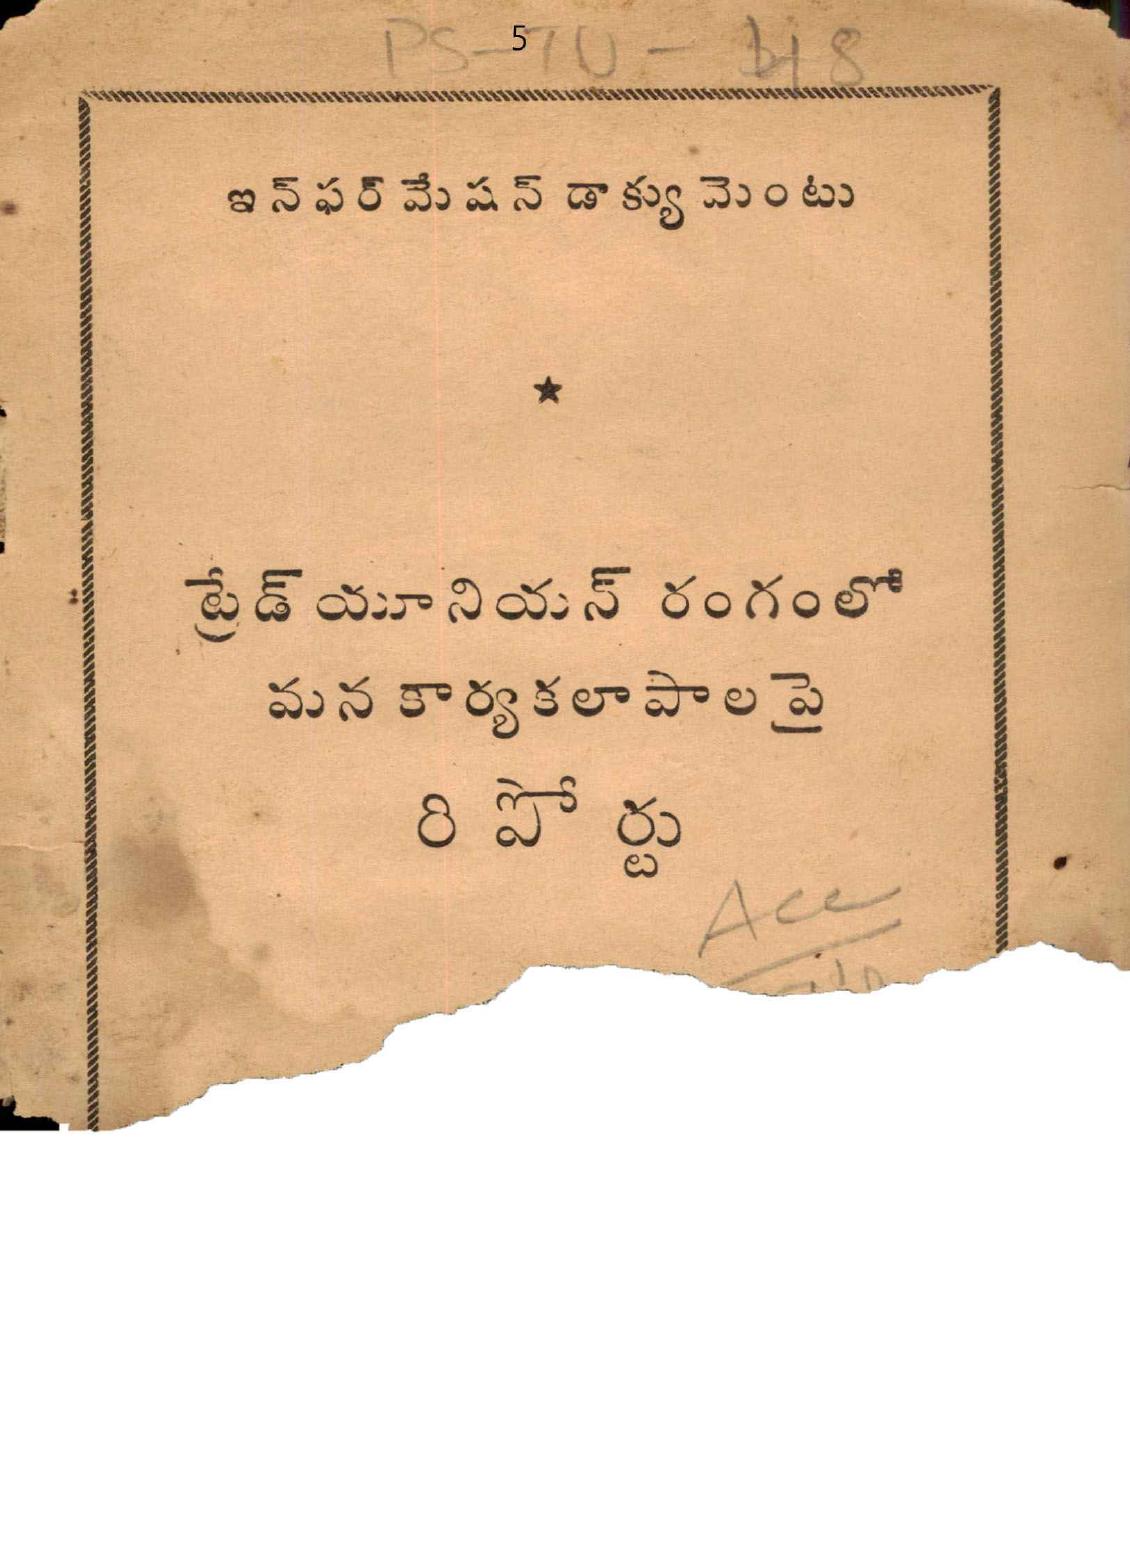 5
PS-TU-
ఇన్‌ఫర్‌మేషన్ డాక్యుమెంటు
★
ట్రేడ్‌యూనియన్ రంగంలో
మన కార్యకలాపాలపై
రిపోర్టు
Acc